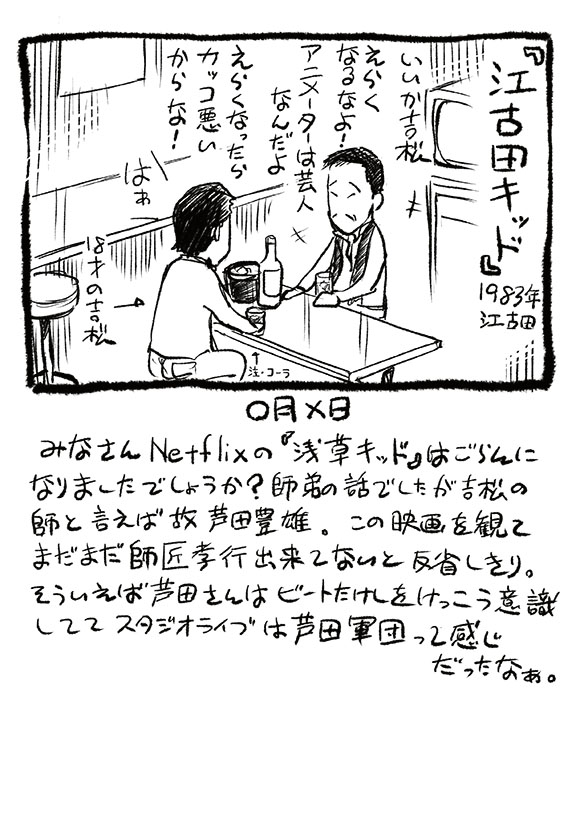 『江古田キッド』
1983年
江古田
いいか吉松
えらく
なるなよ!
アニメーターは芸人
なんだよ
えらくなったら
カッコ悪い
からな!
はぁ
18才の吉松
注・コーラ
〇月×日
みなさんNetflixの『浅草キッド』はごらんに
なりましたでしょうか?師弟の話でしたが吉松の
師と言えば故芦田豊雄。この映画を観て
まだまだ師匠孝行出来てないと反省しきり。
そういえば芦田さんはビートたけしをけっこう意識
しててスタジオライブは芦田軍団って感じ
だったなぁ。